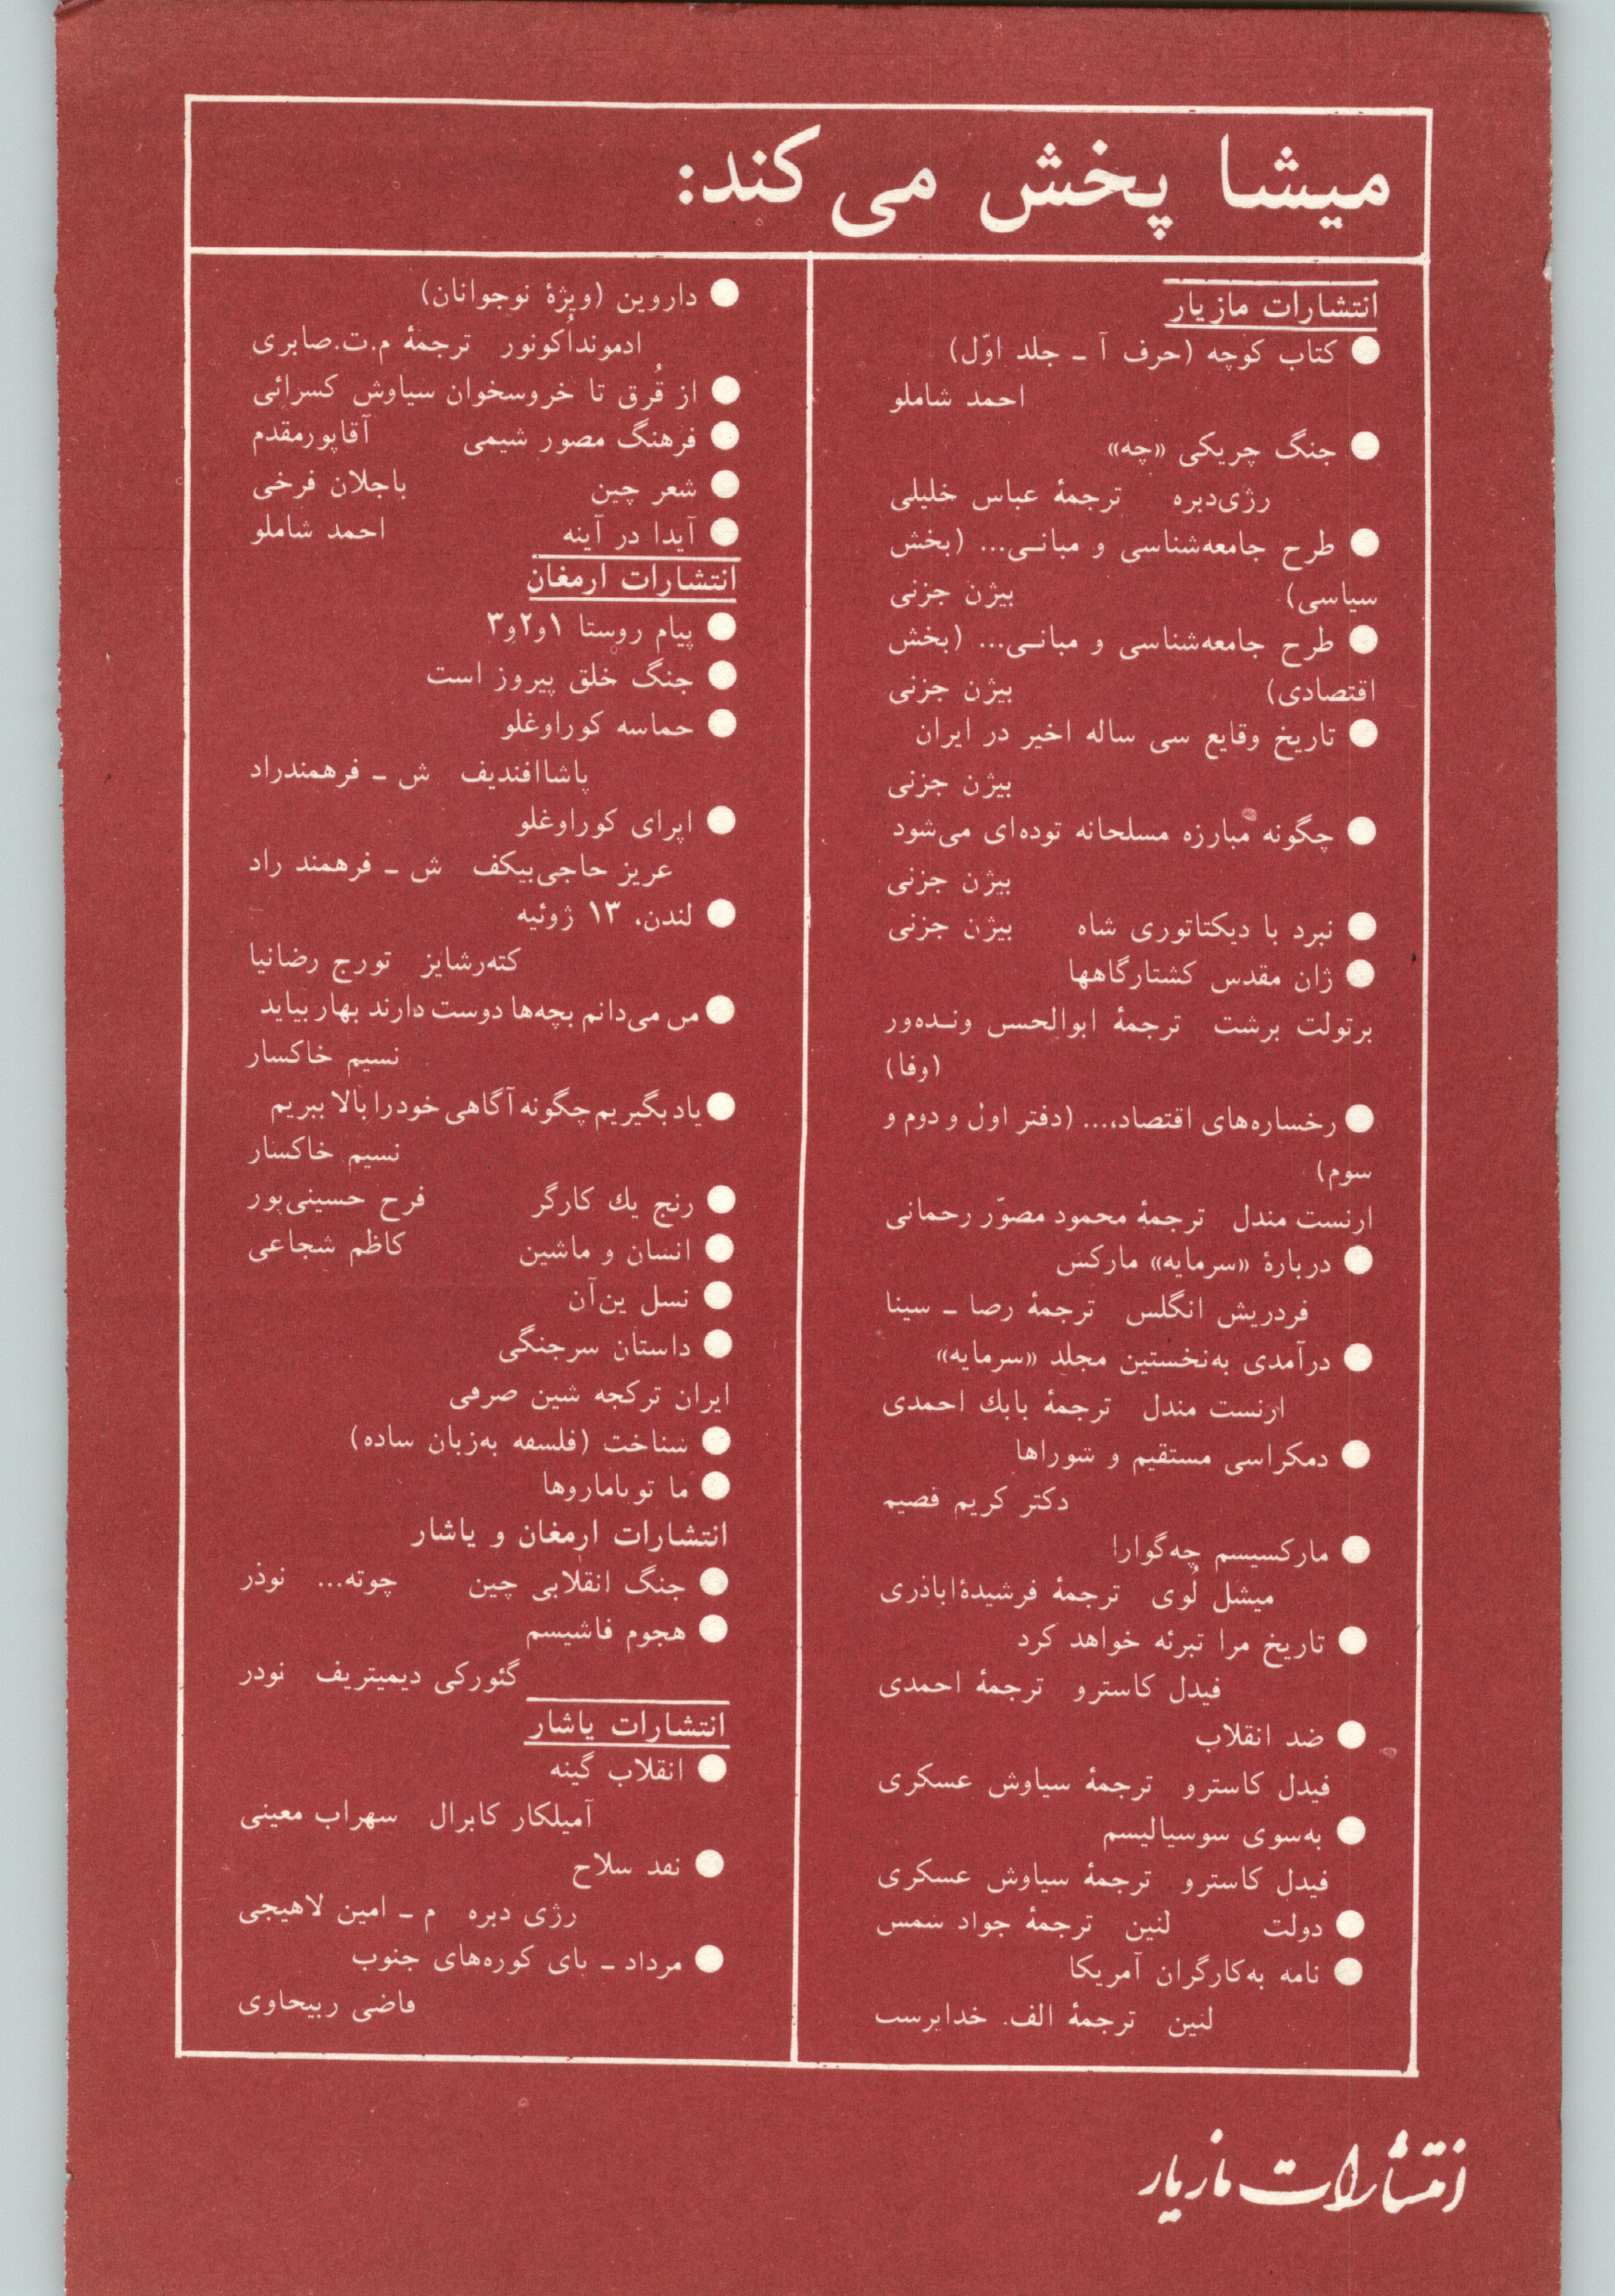 میشا پخش می‌کند:
انتشارات مازیار
● کتاب کوچه (حرف آ ـ جلد اوّل)
احمد شاملو
● جنگ چریکی «چه»
رژی‌دبره ترجمهٔ عباس خلیلی
● طرح جامعه‌شناسی و مبانـی... (بخش
سیاسی) بیژن جزنی
● طرح جامعه‌شناسی و مبانـی... (بخش
اقتصادی) بیژن جزنی
● تاریخ وقایع سی ساله اخیر در ایران
بیژن جزنی
● چگونه مبارزه مسلحانه توده‌ای می‌شود
بیژن جزنی
● نبرد با دیکتاتوری شاه بیژن جزنی
● ژان مقدس کشتارگاهها
برتولت برشت ترجمهٔ ابوالحسن ونـده‌ور
(وفا)
● رخساره‌های اقتصاد،... (دفتر اول و دوم و
سوم)
ارنست مندل ترجمهٔ محمود مصوّر رحمانی
● دربارهٔ «سرمایه» مارکس
فردریش انگلس ترجمهٔ رضا ـ سینا
● درآمدی به‌نخستین مجلد «سرمایه»
ارنست مندل ترجمهٔ بابك احمدی
● دمکراسی مستقیم و شوراها
دکتر کریم قصیم
● مارکسیسم چه‌گوارا
میشل لُوی ترجمهٔ فرشیدهٔاباذری
● تاریخ مرا تبرئه خواهد کرد
فیدل کاسترو ترجمهٔ احمدی
● ضد انقلاب
فیدل کاسترو ترجمهٔ سیاوش عسکری
● به‌سوی سوسیالیسم
فیدل کاسترو ترجمهٔ سیاوش عسکری
● دولت لنین ترجمهٔ جواد شمس
● نامه به‌کارگران آمریکا
لنین ترجمهٔ الف. خداپرست
● داروین (ویژهٔ نوجوانان)
ادمونداُکونور ترجمهٔ م.ت.صابری
● از قُرق تا خروسخوان سیاوش کسرائی
● فرهنگ مصور شیمی آقاپورمقدم
● شعر چین باجلان فرخی
● آیدا در آینه احمد شاملو
انتشارات ارمغان
● پیام روستا ۱و۲و۳
● جنگ خلق پیروز است
● حماسه کوراوغلو
پاشاافندیف ش ـ فرهمندراد
● اپرای کوراوغلو
عریز حاجی‌بیکف ش ـ فرهمند راد
● لندن، ۱۳ ژوئیه
کته‌رشایز تورج رضانیا
● من می‌دانم بچه‌ها دوست دارند بهار بیاید
نسیم خاکسار
● یاد بگیریم چگونه آگاهی خود را بالا ببریم
نسیم خاکسار
● رنج یك کارگر فرح حسینی‌پور
● انسان و ماشین کاظم شجاعی
● نسل ین‌آن
● داستان سرجنگی
ایران ترکجه شین صرفی
● شناخت (فلسفه به‌زبان ساده)
● ما توپاماروها
انتشارات ارمغان و یاشار
● جنگ انقلابی چین چوته... نوذر
● هجوم فاشیسم
گئورکی دیمیتریف نودر
انتشارات یاشار
● انقلاب گینه
آمیلکار کابرال سهراب معینی
● نقد سلاح
رژی دبره م ـ امین لاهیجی
● مرداد ـ پای کوره‌های جنوب
قاضی ربیحاوی
انتشارات مازیار